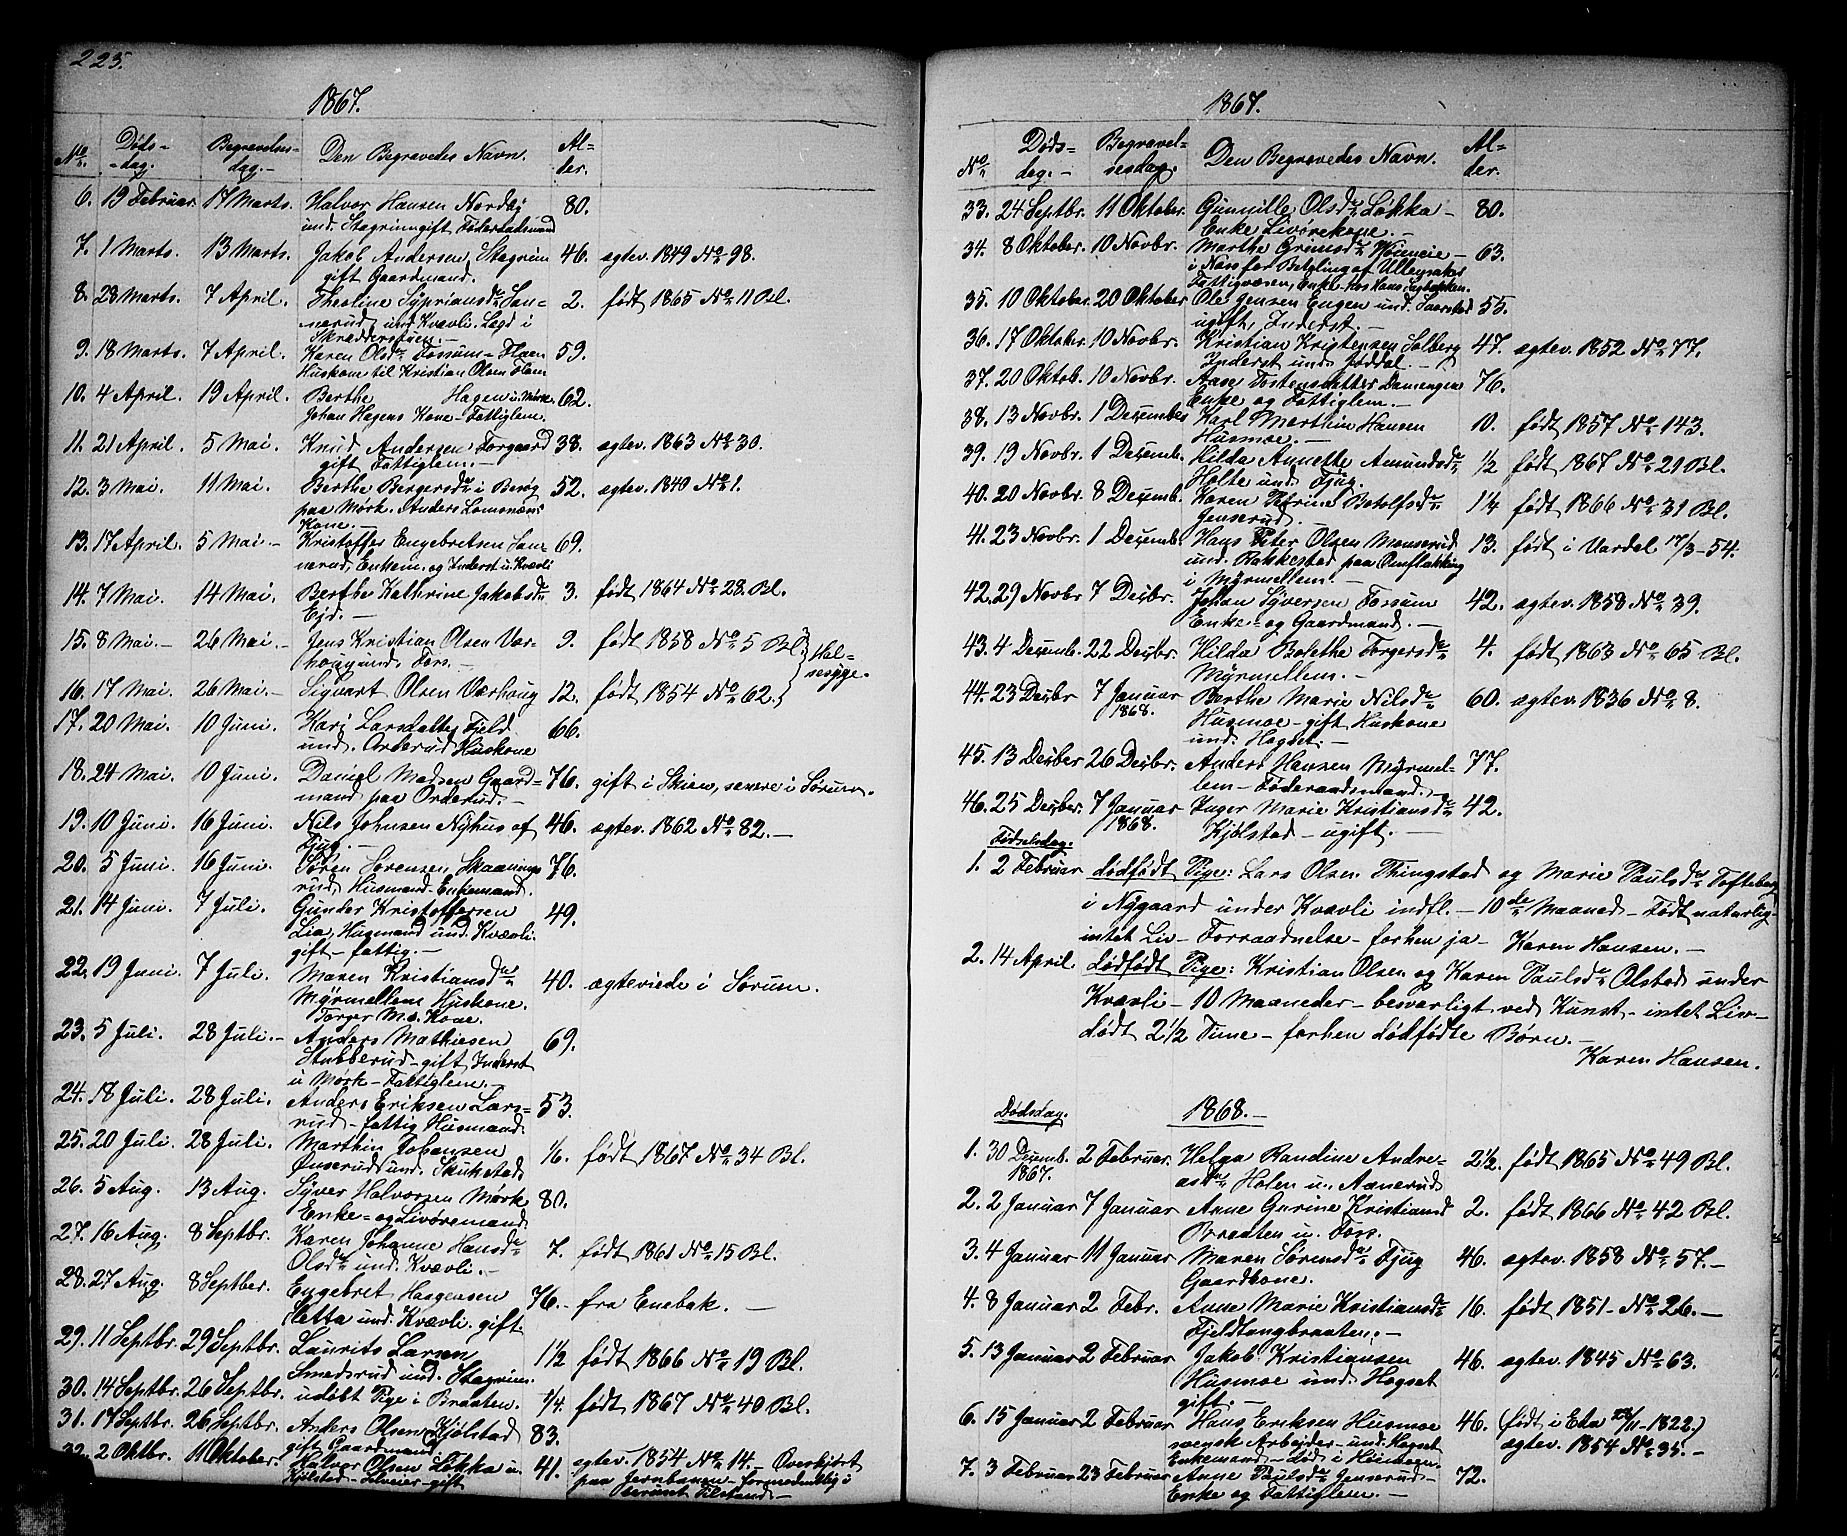 225.
1867.
No. Døds-dag. Begravelses-dag. Den Begravedes Navn. Al-der.
6. 19 Februar. 17 Marts. Halvor Hansen Nordby 80.
und. Stagrim gift Føderaadsmand
7. 1 Marts. 13 Marts. Jakob Andersen Stagrim 46. egtev. 1849 No. 98.
gift Gaardmand.
8. 28 Marts. 7 April. Theoline Sypriansdr. San- 2. født 1865 No. 11 Bl.
nerud und. Kvævli. Lagd i
Skredderstuen.
9. 18 Marts. 7 April. Karen Olsdr. Fossum-Flaen 59.
Huskone til Kristian Olsen Flaen
10. 4 April. 19 April. Berthe Hagen u. Mørk. 62.
Johan Hagens Kone - Fattiglem.
11. 21 April. 5 Mai. Knud Andersen Torgaard 38. egtev. 1863 No. 30.
gift Fattiglem. -
12. 3 Mai. 11 Mai. Berthe Bergersdr. i Berg 52. egtev. 1840 No. 1.
paa Mørk. Anders Lomsnæs
Kone. -
13. 17 April. 5 Mai. - Kristoffer Engebretsen San- 69.
nerud, Enkem. og Inderst u. Kvævli
14. 7 Mai. 14 Mai. Berthe Kathrine Jakobsdr. 3. født 1864 No. 28. Bl.
Ejd.
15. 8 Mai. - 26 Mai. - Jens Kristian Olsen Vor- 9. født 1858 No. 5 Bl. Hal-
houg und. Fors. - sesyge.
16. 17 Mai. 26 Mai. - Sigvart Olsen Værhoug 12. født 1854 No. 62.
17. 20 Mai. 10 Juni. Kari Larsdatter Fjeld 66.
und. Orderud Huskone
18. 24 Mai. 10 Juni. Daniel Madsen Gaard- 76. gift i Skien, senere i Sørum.
mand paa Orderud. -
19. 10 Juni. 16 Juni. Nils Johnsen Nyhus af 46. egtev. 1862 No. 82. -
Tjug. -
20. 5 Juni. 16 Juni. Søren Sørensen Skaanings 76.
rud Husmand. Enkemand.
21. 14 Juni. 7 Juli. Gunder Kristoffersen 49.
Lia, Husmand und. Kvævli.
gift - fattig. -
22. 19 Juni. 7 Juli. Maren Kristiansdr. 40. egteviede i Sørum.
Myrmellem Huskone.
Torger M.s Kone.
23. 5 Juli. 28 Juli. - Anders Mathiesen 69.
Stubberud - gift Inderst
u Mørk - Fattiglem. -
24. 18 Juli. 28 Juli. Anders Eriksen Lars- 53.
rud - fattig Husmand.
25. 20 Juli. 28 Juli. Marthin Johansen 1/6. født 1867 No. 34 Bl.
und. Skukstad
26. 5 Aug. 13 Aug. Syver Halvorsen Mørk 80.
Enke- og Livøremand
27. 16 Aug. 8 Septbr. Karen Johanne Hansdr. 7. født 1861 No. 15 Bl.
Olsdr. und. Kvævli. -
28. 27 Aug. 8 Septber. Engebret Haagensen 76. - fra Enebak. -
Sletta und. Kvævli. gift.
29. 11 Septbr. 29 Septbr. Laurits Larsen 1 1/2 født 1866 No. 19 Bl.
Smedsrud und. Stagrim.
30. 14 Septbr. 26 Septbr. udøbt Pige i Braaten. 1/4. født 1867 No. 40 Bl.
31. 17 Septbr. 26 Septbr. Anders Olsen Kjølstad 83.
gift Gaardmand.
32. 2 Oktbr. 11 Oktober. Halvor Olsen Løkka u 41. egtev. 1854 No. 14. - Overkjørt
Kjølstad - gift paa Jernbanen - formodentlig i
beruset Tilstand. -
1867.
No. Døds-dag. - Begravel-sesdag. Den Begravedes Navn. Al-der.
33. 24 Septbr. 11 Oktober. Gunnille Olsdr. Løkka - 80.
Enke Livørekone. -
34. 8 Oktober. 10 Novbr. Marthe Grimsdr. 63.
i Næs for Betaling af Ullensaker
Fattigvæsen, Enke
35. 10 Oktober. 20 Oktober Ole Jensen Engen und. 55.
ugift, Inderst. -
36. 17 Oktober. 10 Novbr. Kristian Kristensen Solberg 47. egtev. 1852 No. 77.
Inderst und. Jøddal. -
37. 20 Oktob. 10 Novbr. Aase Tostensdatter Damengen 76.
Enke og Fattiglem. -
38. 13 Novbr. 1 December Karl Marthin Hansen 10. født 1857 No. 143.
Husmoe. -
39. 19 Novbr. 1 Decemb. Hilda Annette Amundsdr. 1/2 født 1867 No. 21 Bl.
Holte und. Tjug.
40. 20 Novbr. 8 Decemb. Karen Petrine Botolfsdr. 1 1/4 født 1866 No. 31 Bl.
Jenserud. -
41. 23 Novbr. 1 Decemb. Hans Peter Olsen Monserud 13. født i Vardal 17/3 - 54.
und. Rakkestad paa Omflakking
i Myrmellem. -
42. 29 Novbr 7 Decbr. Johan Syversen Fossum 42. egtev. 1858 No. 39.
Enke- og Gaardmand. -
43. 4 Decemb. 22 Decbr. Hilda Bolette Torgersdr. 4. født 1863 No. 65 Bl.
Myrmellem. -
44. 23 Decbr 7 Januar 1868. Berthe Marie Nilsdr. 60. egtev. 1836 No. 8.
Husmoe - gift Huskone
und. Hogset. -
45. 13 Decber 26 Decbr. Anders Hansen Myrmel- 77.
lem - Føderaadsmand. -
46. 25 Decber. 7 Januar 1868. Inger Marie Kristiansdr. 42.
Kjølstad - ugift. -
Fødselsdag.
1. 2 Februar dødfødt Pige: Lars Olsen Thingstad og Marie Paulsdr. Tofteberg
i Nygaard under Kvævli indfl. - 10de Maaned - Født naturlig -
intet Liv - Forraadnelse - forhen ja - Karen Hansen. -
2. 14 April. dødfødt Pige: Kristian Olsen og Karen Paulsdr. Olstad under
Kvævli - 10 Maaneder - besværligt ved Kunst - intet Liv -
dødt 2 1/2 Time - forhen dødfødte Børn. -
Karen Hansen.
Dødsdag. 1868. -
1. 30 Decemb. 1867. 2 Februar. Helga Randine Andre- 2 1/2. født 1865 No. 49 Bl.
asdr. Holen u. Aanerud
2. 2 Januar 7 Januar Anne Gurine Kristiansd 2. født 1866 No. 42 Bl.
Braaten u. Foss.
3. 4 Januar 11 Januar Maren Sørensdr. Tjug 46. egtev. 1858 No. 57. -
Gaardkone.
4. 8 Januar 2 Febr. Anne Marie Kristiansdr. 16. født 1851 - No. 26. -
Fjeldtangbraaten. -
5. 13 Januar 2 Februar Jakob Kristiansen 46. egtev. 1845 No. 63.
Husmoe und. Hogset
gift. -
6. 15 Januar 2 Februar Hans Eriksen Husmoe 46. (født i Eda /11 - 1822.)
svensk Arbejder - und. Hogset egtev. 1854 No. 35. -
Enkemand - død i
7. 3 Februar 23 Februar Anne Paulsdr. Jenserud - 72.
Enke og Fattiglem. -